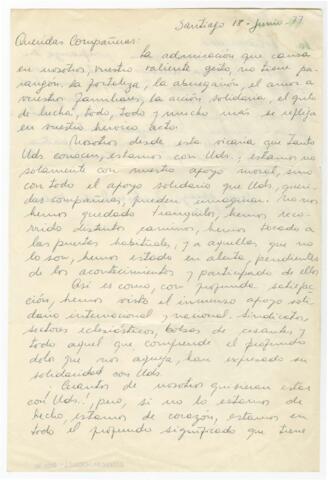 Santiago 18 - Junio - 77
Queridas Compañeras:
La admiración que causa
en nosotros, vuestro valiente gesto, no tiene pa-
rangón. La fortaleza, la abnegación, el amor a
vuestros familiares, la acción solidaria, el grito
de lucha, todo, todo y mucho más se refleja
en vuestro heroico acto.
Nosotros desde esta vicaría que tanto
Uds. conocen, estamos con Uds.; estamos no
solamente con nuestro apoyo moral, sino
con todo el apoyo solidario que Uds, queri-
das compañeras, pueden imaginar. No nos
hemos quedado tranquilos, hemos reco-
rrido distintos caminos, hemos tocado a
las puertas habituales, y a aquellas que no
lo son, hemos estado en alerta, pendientes
de los acontecimientos y participado de ellos
Así es como, con profunda satisfac-
ción, hemos visto el inmenso apoyo soli-
dario internacional y nacional. Sindicatos,
sectores eclesiásticos, bolsas de cesantes, y
todo aquel que comprende el profundo
dolor que nos aqueja, han expresado su
solidaridad con Uds.
¡Cuántos de nosotros quisieran estar
con Uds.!, pero, si no lo estamos de
hecho, estamos de corazón, estamos en
todo el profundo significado que tiene